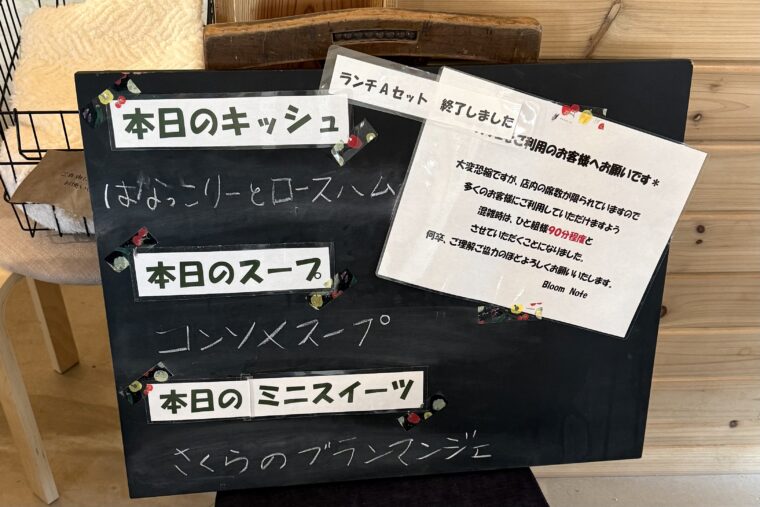 本日のキッシュ
はなっこりーとロースハム
本日のスープ
コンソメスープ
本日の ミニスイーツ
さくらのブランマンジェ
ランチAセット 終了しました
ご利用のお客様へお願いです*
大変恐縮ですが、店内の席数が限られていますので
多くのお客様にご利用していただけますよう
混雑時は、ひと組様90分程度と
させていただくことになりました。
何卒、ご理解ご協力のほどよろしくお願いいたします。
Bloom Note